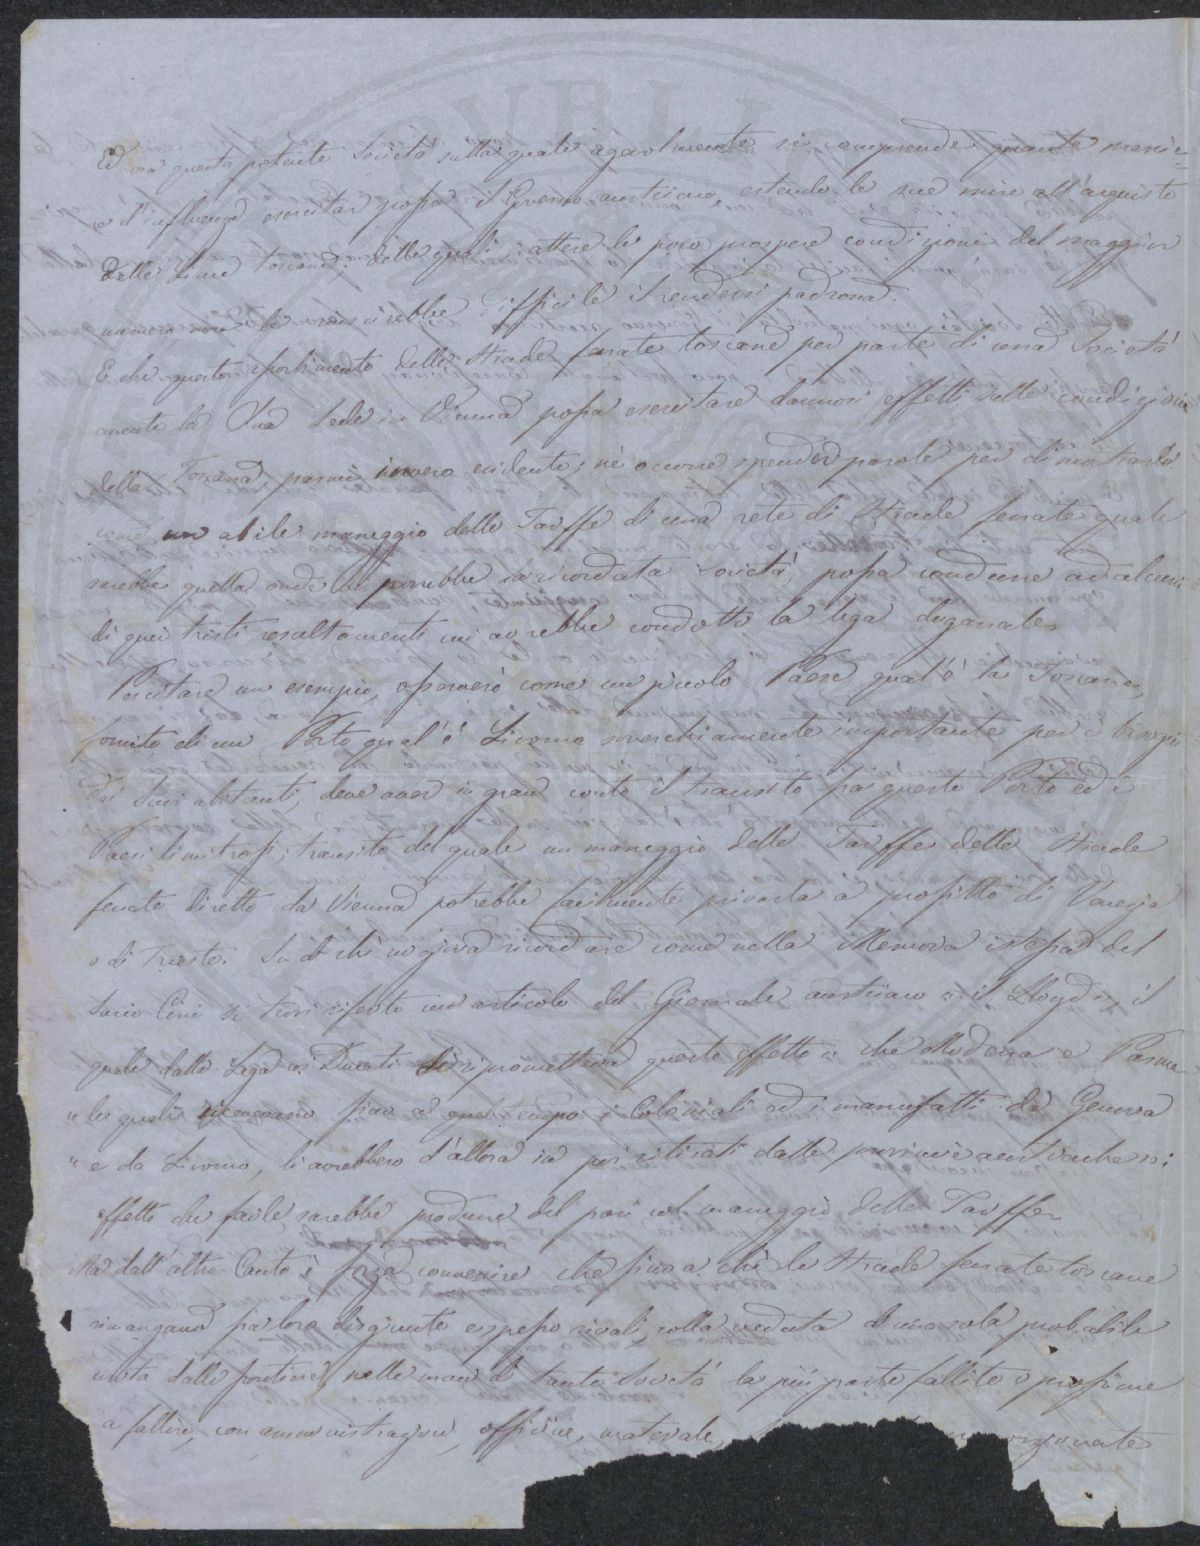 Ed ora questa potente Società sulla quale agevolmente si comprende quanta mario=
e d'influenza esercitar possa il Governo austriaco, estende le sue mire all'acquisto
delle Linee toscane; delle quali attese le poco prospere condizioni del maggior
numero, non le riuscirebbe difficile il rendersi padrona.
E che questo assorbimento delle strade ferrate toscane per parte di una Società
avente la sua sede in Vienna possa esercitare dannosi effetti sulle condizioni
della Toscana, parmi invero evidente; nè occorre spender parole per dimostrarlo
come un abile maneggio delle Tariffe di una rete di strade ferrate quale
sarebbe quella onde la parrebbe la ricordata Società, possa condurre ad alcuni
di quei tristi resultamenti cui avrebbe condotto la Lega doganale.
Per citare un esempio, osserverò come un piccolo Paese qual'è la Toscana,
fornito di un Porto qual'è Livorno soverchiamente importante per i bisogni
dei suoi abitanti, deve aver in gran conto il transito fra questo Porto ed i
Paesi limitrofi; transito del quale un maneggio delle Tariffe delle strade
ferrate diretto da Vienna potrebbe facilmente privarla a profitto di Venezia
o di Trieste. Su di chè mi giova ricordare come nella Memoria istessa del
Socio Cini si trovi riferito un articolo del Giornale austriaco = il Lloyd =, il
quale dalla Lega coi Ducati si riprometteva questo effetto = che Modena e Parma
" le quali ricevevano fino a quel tempo i Coloniali ed i manufatti da Genova
" e da Livorno, li avrebbero d'allora in poi ritirati dalle provincie austriache =;
effetto che facile sarebbe produrre del pari col maneggio delle Tariffe.
Ma dall'altro Canto è forza convenire che fino a chè le strade ferrate toscane
rimangano fra loro disgiunte e spesso rivali, colla veduta di una sola probabile
uscita dalle frontiere, nelle mani di tante Società la più parte fallite o prossime
a fallire, con amministrazioni, officine, materiale,